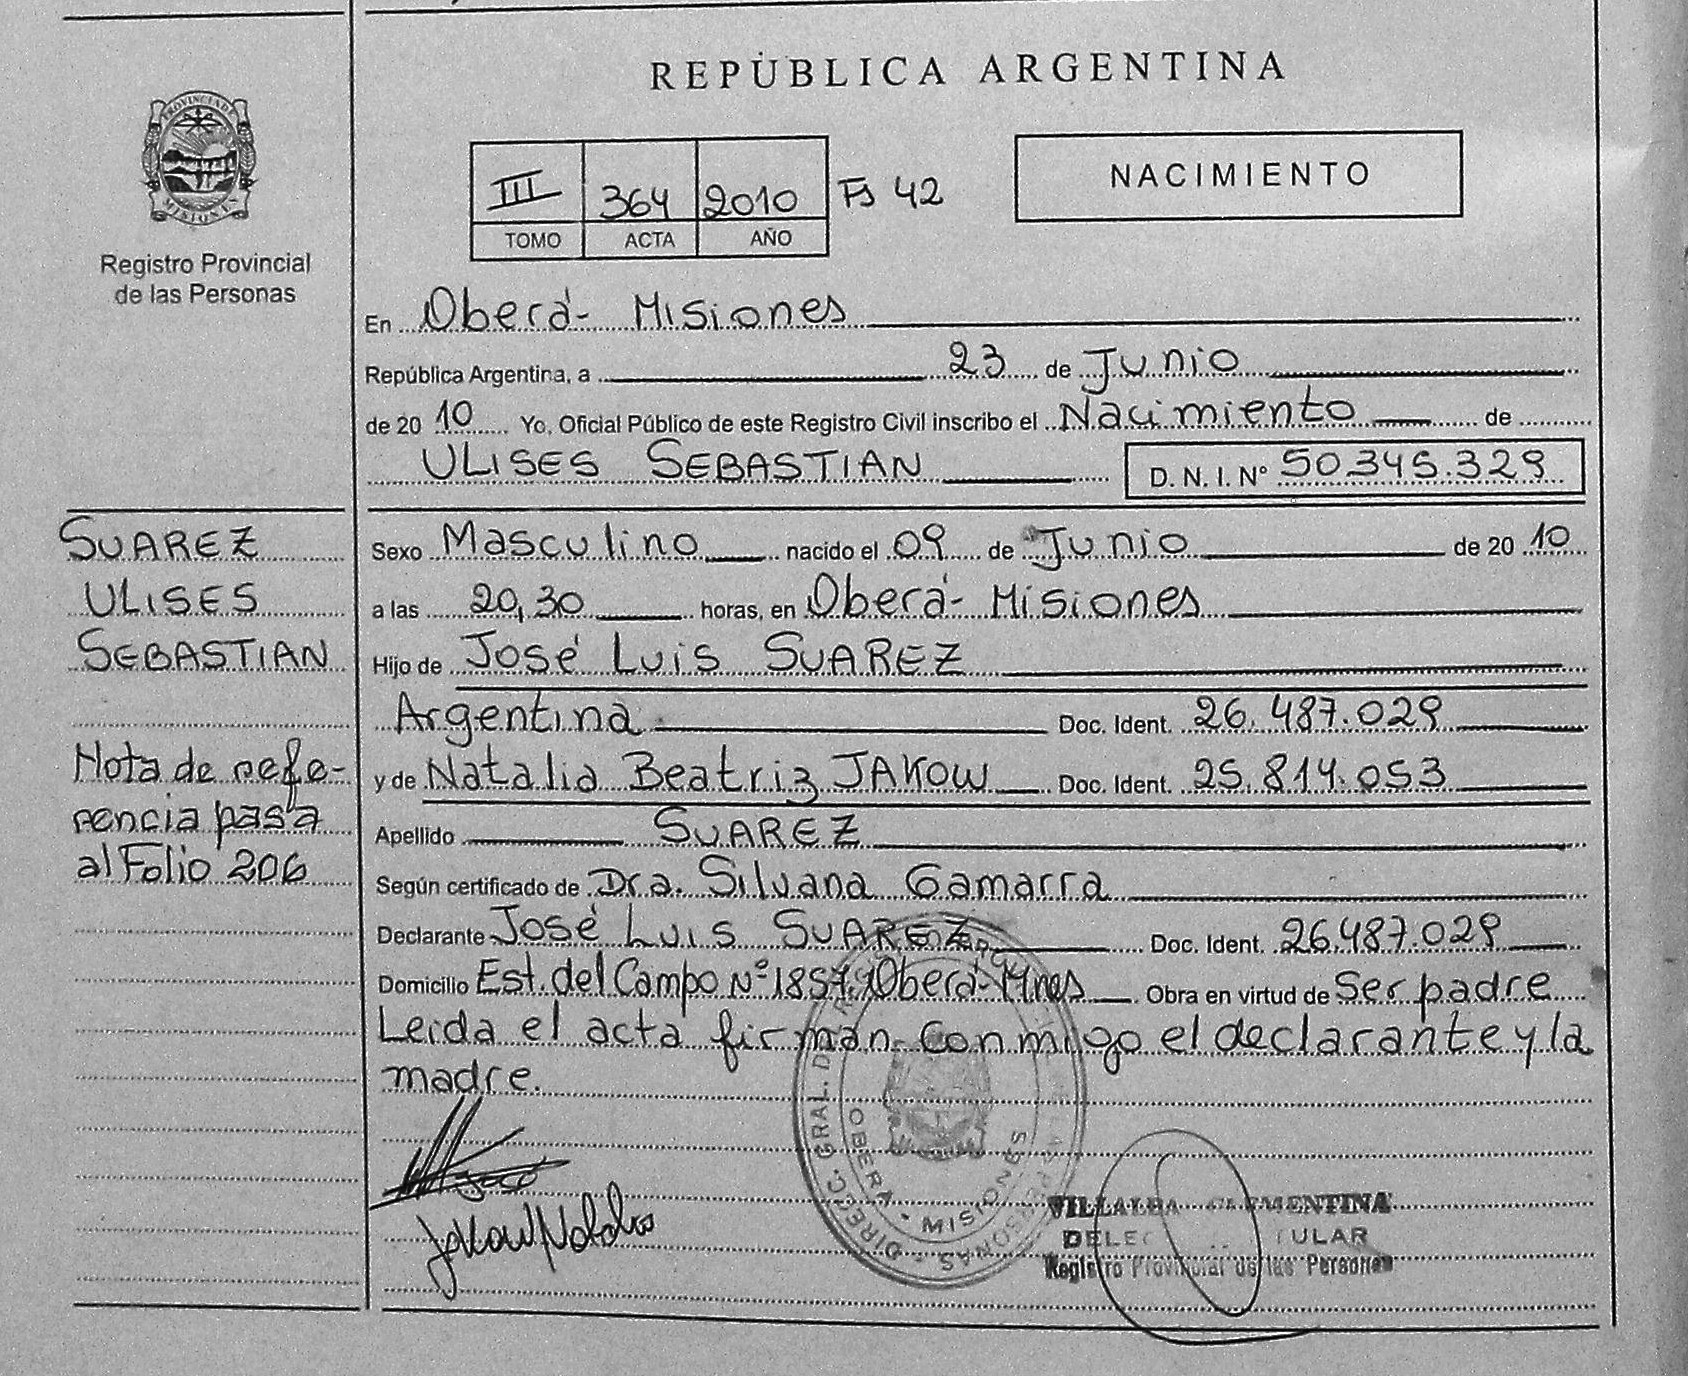 REPÚBLICA ARGENTINA
PROVINCIA DE
MISIONES
Registro Provincial
de las Personas
III 364 2010 Fs 42
TOMO ACTA AÑO
NACIMIENTO
En Oberá- Misiones
República Argentina, a 23 de Junio
de 2010 Yo, Oficial Público de este Registro Civil inscribo el Nacimiento de
ULISES SEBASTIAN D. N. I. Nº 50.345.329
SUAREZ
ULISES
SEBASTIAN
Nota de refe-
rencia pasa
al Folio 206
Sexo Masculino nacido el 09 de Junio de 2010
a las 20,30 horas, en Oberá- Misiones
Hijo de José Luis SUAREZ
Argentina Doc. Ident. 26.487.029
y de Natalia Beatriz JAKOW Doc. Ident. 25.814.053
Apellido SUAREZ
Según certificado de Dra. Silvana Gamarra
Declarante José Luis SUAREZ Doc. Ident. 26.487.029
Domicilio Est. del Campo Nº 1857. Oberá- Mnes Obra en virtud de Ser padre
Leida el acta firman conmigo el declarante y la
madre.
DIREC. GRAL. DE PERSONAS
OBERA - MISIONES
Jakow Natalia
VILLALBA CLEMENTINA
Registro Provincial de las Personas